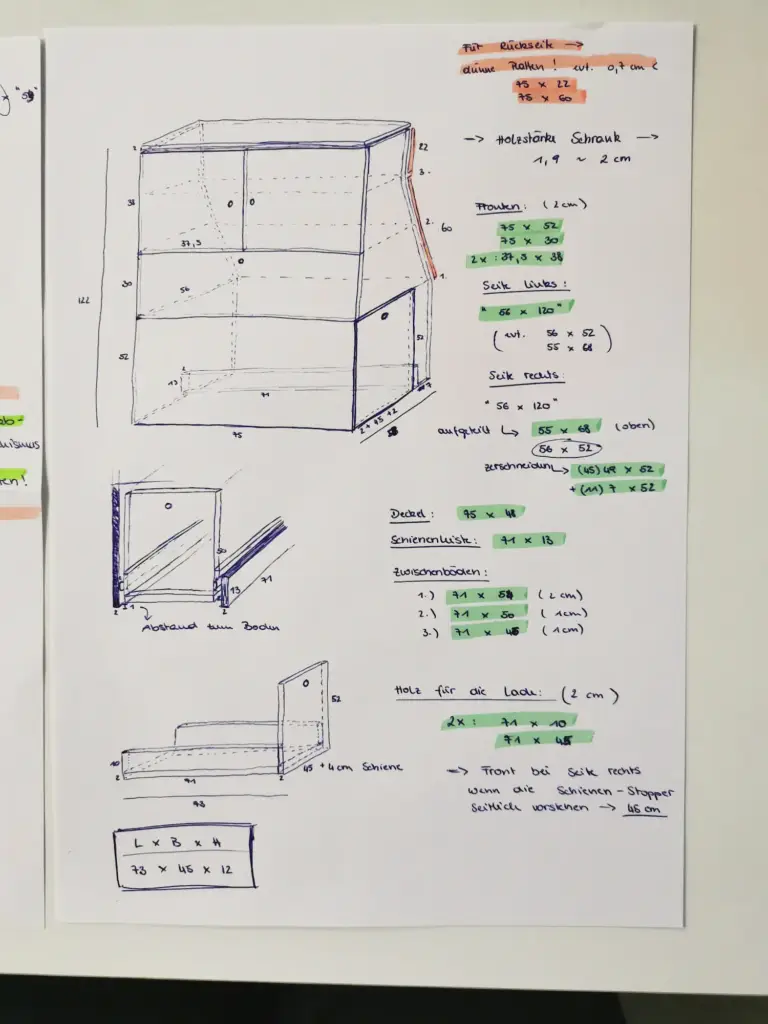 Für Rückseite →
dünne Platten! evt. 0,7 cm
75 x 22
75 x 60
→ Holzstärke Schrank →
1,9 ~ 2 cm
Fronten: (2cm)
75 x 52
75 x 30
2x: 37,5 x 38
Seite Links:
"56 x 120"
(evt. 56 x 52
55 x 68)
Seite rechts:
"56 x 120"
aufgeteilt ↳ 55 x 68 (oben)
56 x 52
zerschneiden ↳ (45) 49 x 52
+ (11) 7 x 52
Deckel: 75 x 48
Schienenleiste: 71 x 13
Zwischenböden:
1.) 71 x 54 (2cm)
2.) 71 x 50 (1cm)
3.) 71 x 45 (1cm)
Holz für die Lade: (2cm)
2x: 71 x 10
71 x 45
→ Front bei Seite rechts
wenn die Schienen-Stopper
seitlich vorstehen → 46 cm
2
22
3.
38
2.
60
37,5
1.
122
30
56
52
52
13
2
71
7
75
2 + 75 + 2
50
13
71
2
1
2
Abstand zum Boden
52
10
2
71
2
45 + 4cm Schiene
73
L x B x H
73 x 45 x 12
ab-
ismus
en!